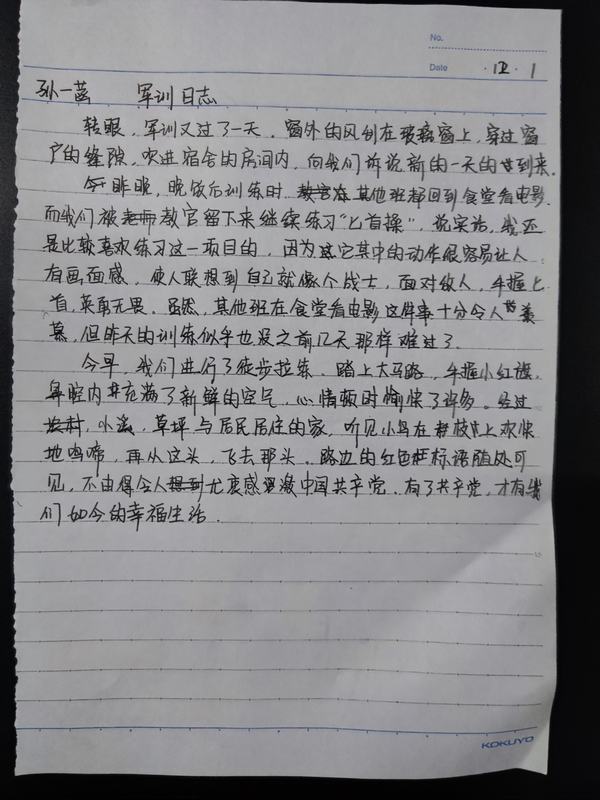 No.
Date 12 · 1
孙一菡 军训日志
转眼，军训又过了一天。窗外的风刮在玻璃窗上，穿过窗
户的缝隙，吹进宿舍的房间内，向我们诉说新的一天的到来。
昨晚，晚饭后训练时，其他班都回到食堂看电影
而我们被教官留下来继续练习“匕首操”，说实话，我还
是比较喜欢练习这一项目的，因为它其中的动作很容易让人
有画面感，使人联想到自己就像个战士，面对敌人，手握匕
首，英勇无畏。虽然，其他班在食堂看电影这件事十分令人羡
慕，但昨天的训练似乎也没之前几天那样难过了。
今早，我们进行了徒步拉练。踏上大马路，手握小红旗，
鼻腔内充满了新鲜的空气，心情顿时愉快了许多。经过
农村，小溪，草坪与居民居住的家，听见小鸟在枝上欢快
地鸣啼，再从这头，飞去那头。路边的红色标语随处可
见，不由得令人尤衷感激中国共产党，有了共产党，才有我
们如今的幸福生活。
KOKUYO